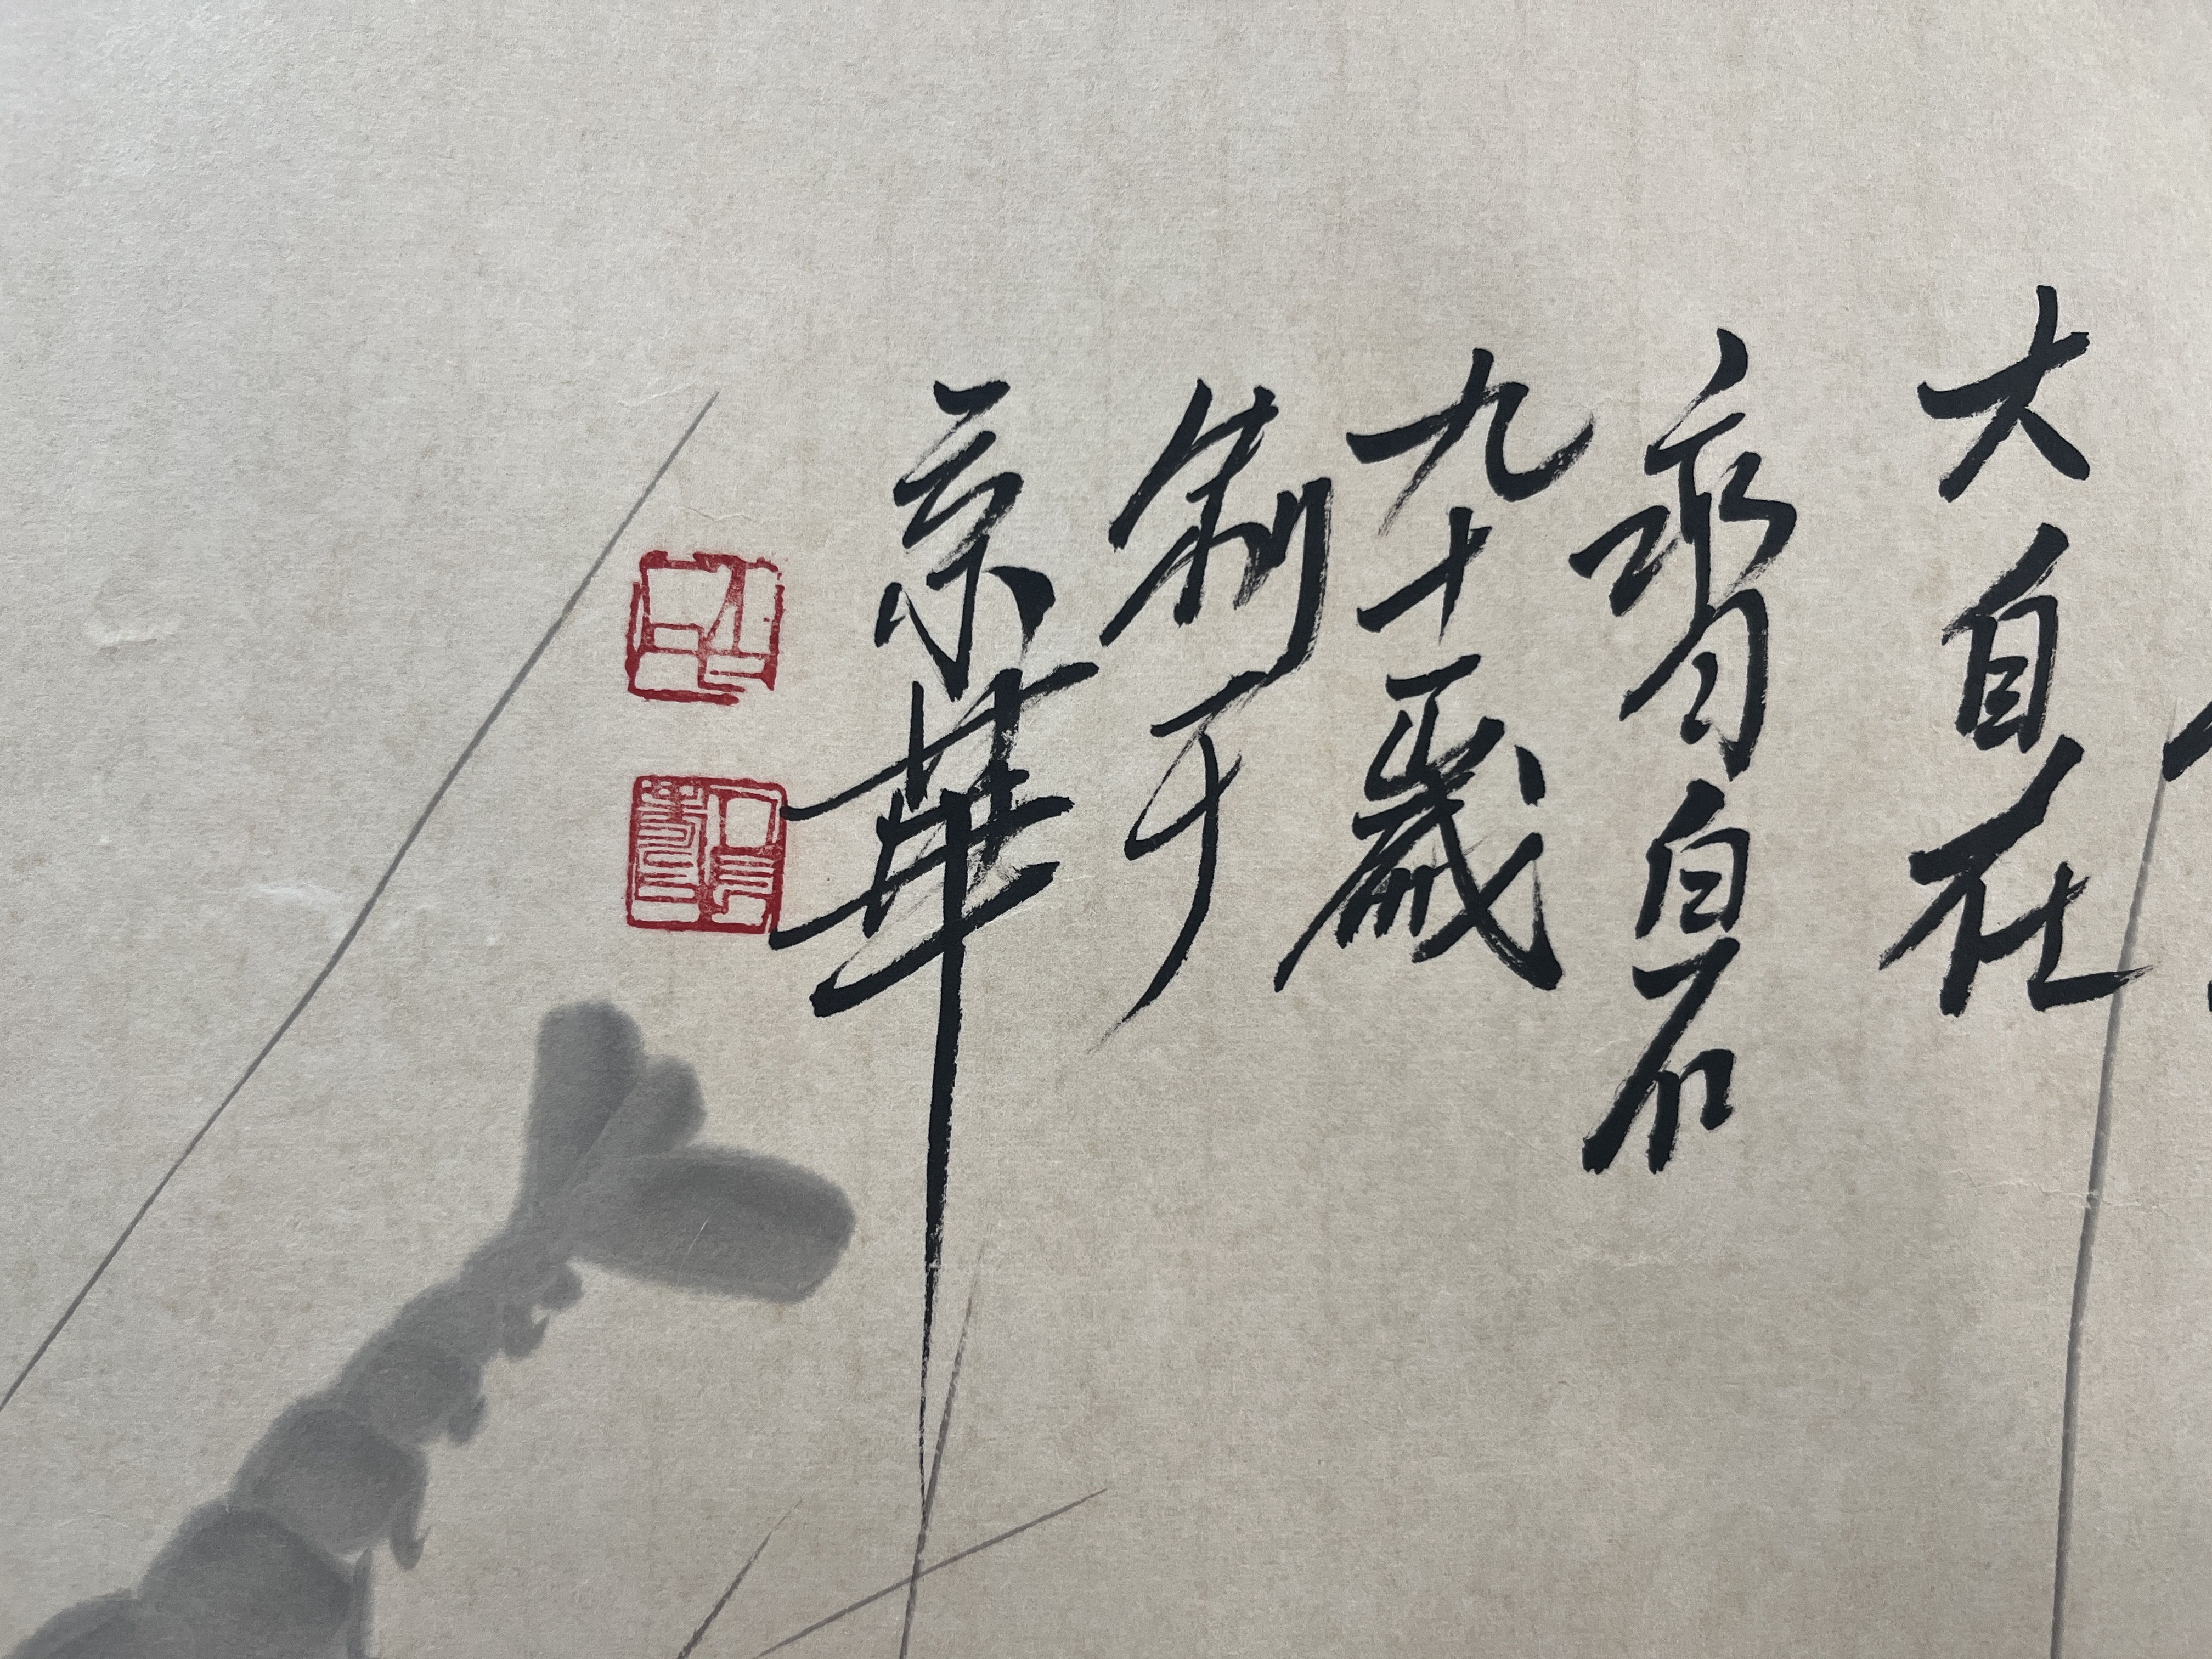 大自在
齊白石
九十一歲
制于
京華